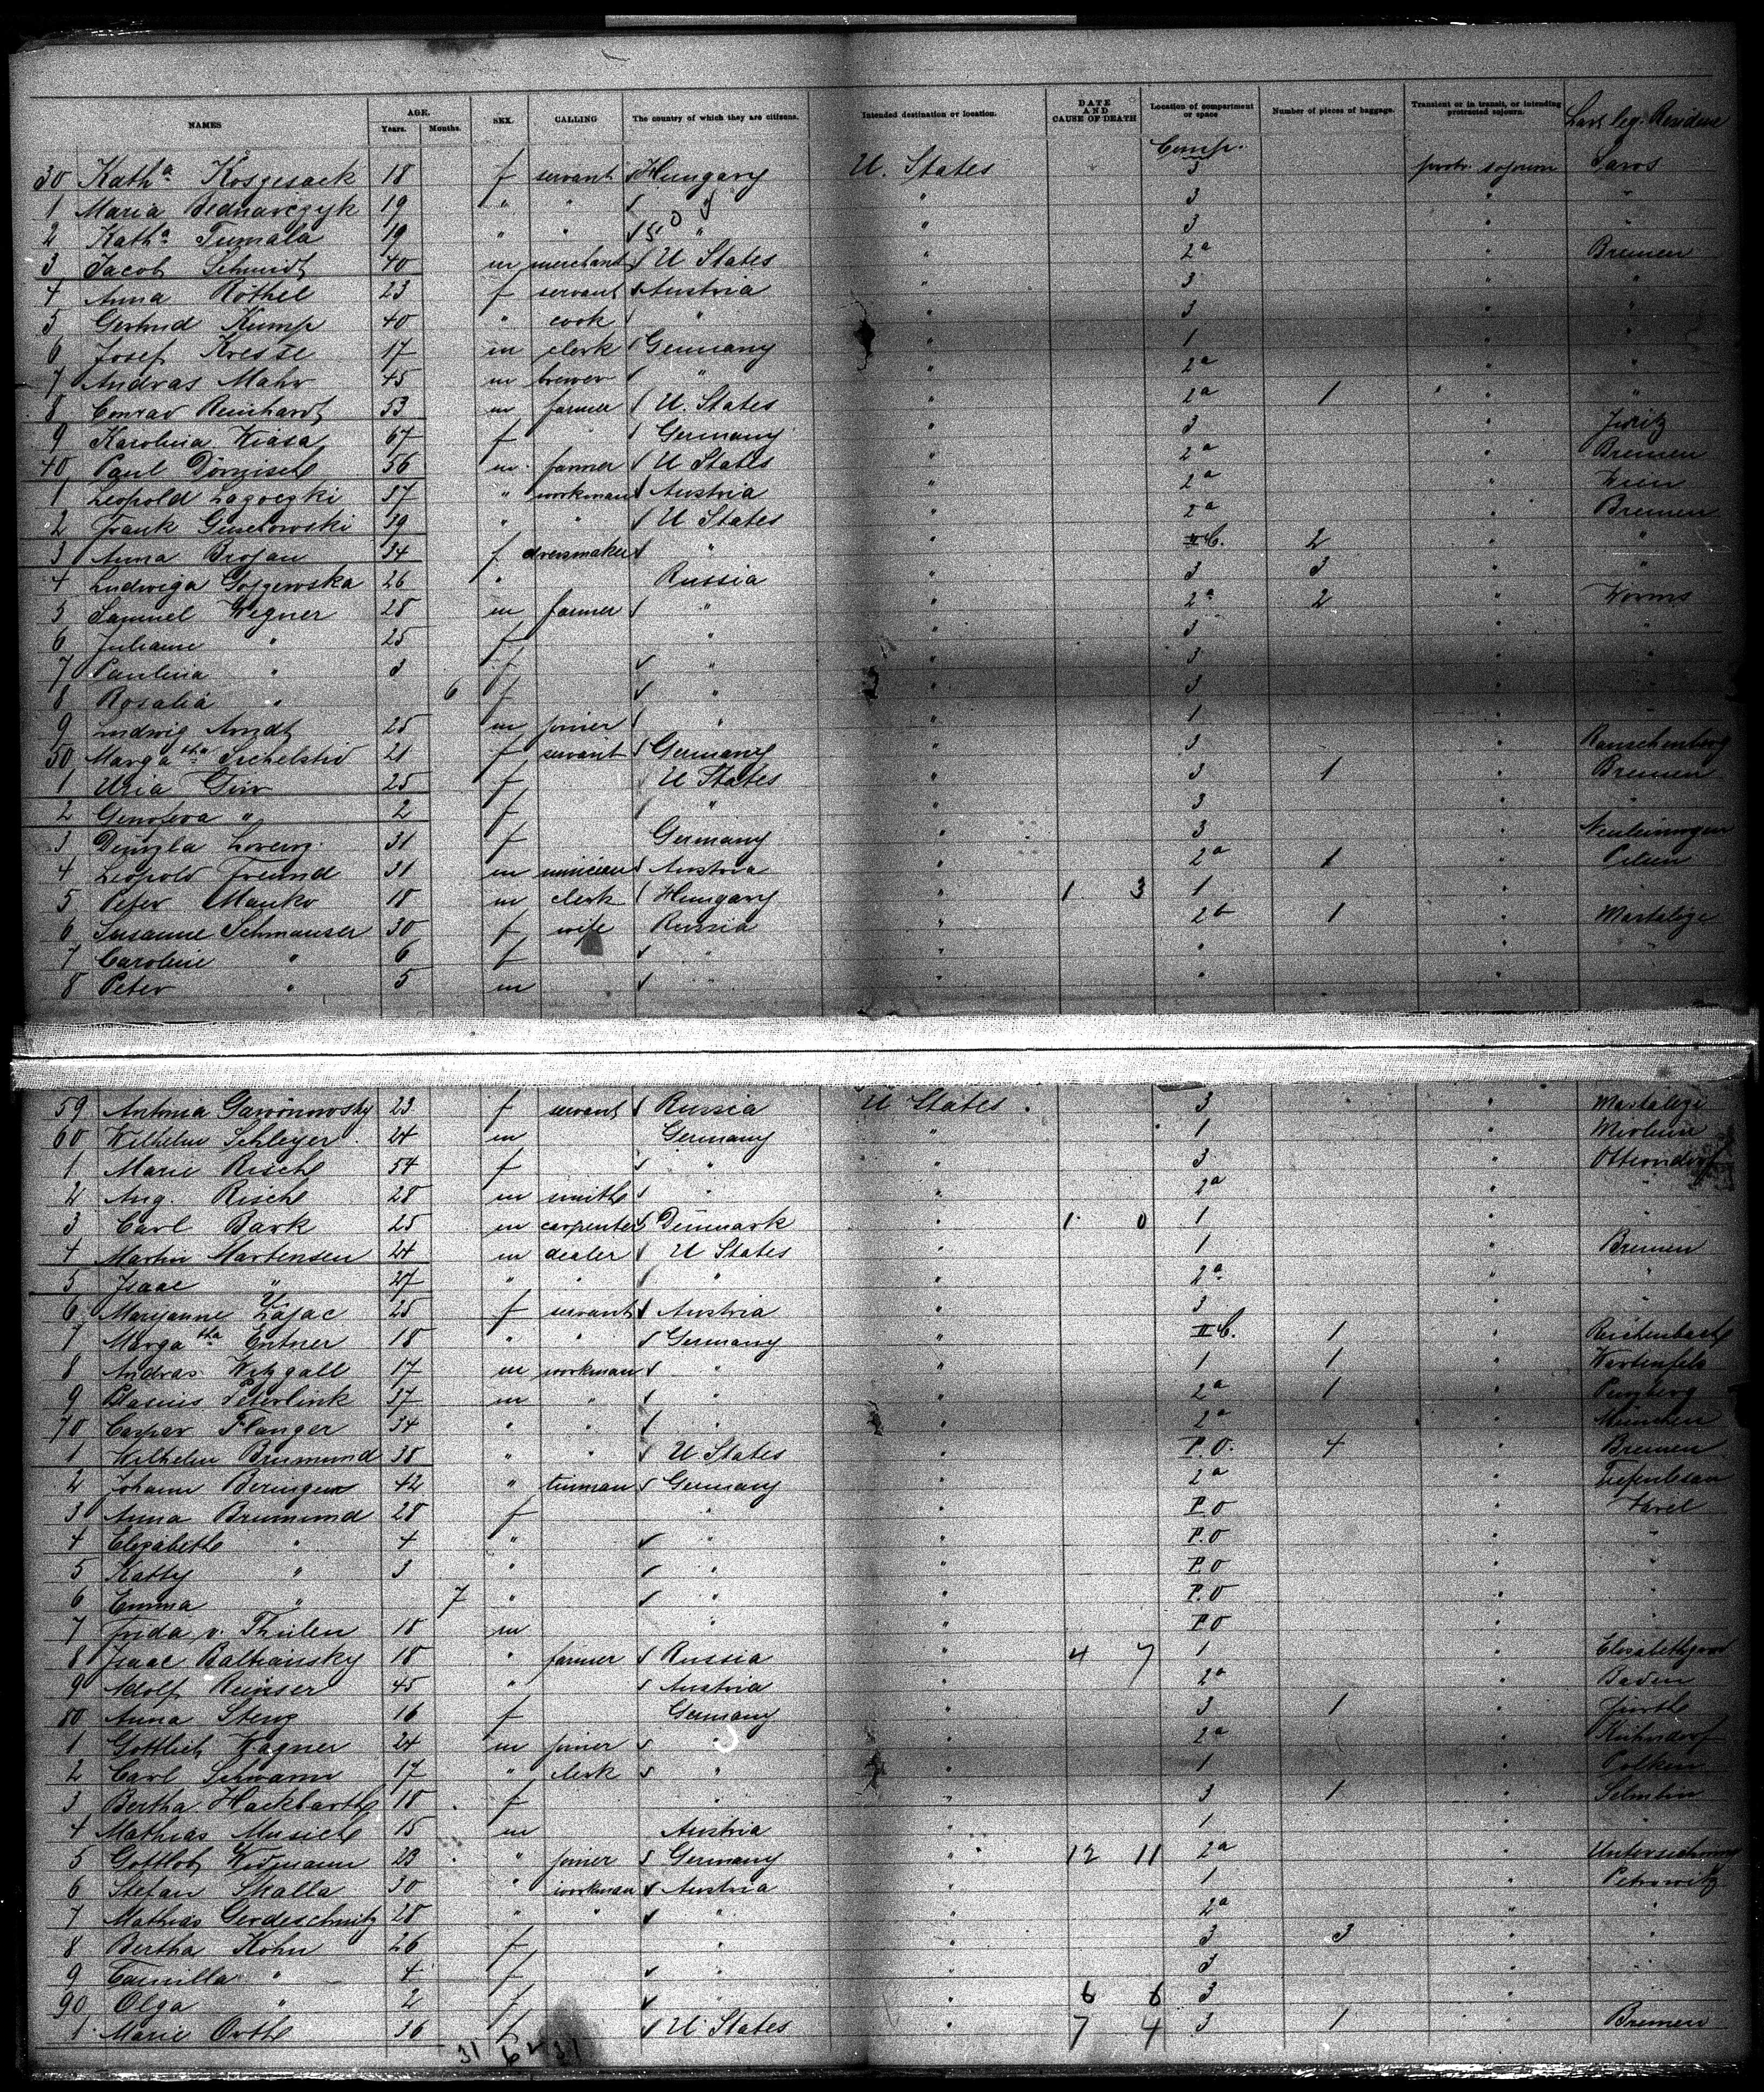 NAMES AGE. Years. Months. SEX. CALLING The country of which they are citizens. Intended destination or location. DATE AND CAUSE OF DEATH Location of compartment or space Number of pieces of baggage. Transient or in transit, or intending protracted sojourn. Last leg. Residence
Comp.
30 Kath.a Kosgesack 18 f servant Hungary U. States 3 protr. sojourn Saros
1 Maria Bednarczyk 19 " " " " 3 " "
2 Kath.a Tumala 19 " " " " 3 " "
3 Jacob Schmidt 40 m merchant U States " 2a " Bremen
4 Anna Röthel 23 f servant Austria " 3 " "
5 Gertrud Kump 40 " cook " " 3 " "
6 Josef Kresse 17 m clerk Germany " 1 " "
7 Andras Mahr 45 m brewer " " 2a " "
8 Conrad Reinhardt 53 m farmer U. States " 2a 1 " "
9 Karolina Kiasa 67 f Germany " 3 "
40 Paul 56 m. farmer U States " 2a " Bremen
1 Leopold 37 " workman Austria " 2a " Wien
2 Frank 39 " " U States " 2a " Bremen
3 Anna Brojan 34 f dressmaker " " II C. 2 " "
4 Ludwiga 26 " Russia " 3 3 " "
5 Samuel Wegner 28 m farmer " " 2a 2 " Worms
6 Juliane " 25 f " " 3 " "
7 Paulina " 3 f " " 3 " "
8 Rosalia " 6 f " " 3 " "
9 Ludwig Arndt 25 m joiner " " 1 " "
50 Marga tha Sichelstid 21 f servant Germany " 3 " Rauschenberg
1 25 f U States " 3 1 " Bremen
2 Genofeva " 2 f " " 3 " "
3 31 f Germany " 3 " Neuleiningen
4 Leopold Freund 31 m Austria " 2a 1 " Pilsen
5 Peter Manko 18 m clerk Hungary " 1 3 1 " "
6 Susanne Schmauser 30 f wife Russia " 2b 1 " Mastalige
7 Caroline " 6 f " " " " "
8 Peter " 5 m " " " " "
59 Antonia 23 f servant Russia U States. 3 " Mastalige
60 Wilhelm Schleyer 24 m Germany " 1 "
1 Marie Risch 54 f " " 3 " Otterndorf
2 Aug. Risch 28 m smith " " 2a " "
3 Carl Bark 25 m carpenter Denmark " 1 0 1 " "
4 Martin Martensen 24 m dealer U States " 1 " Bremen
5 Isaac " 27 " " " " 2a " "
6 Maryanne Zajac 25 f servant Austria " 3 " "
7 Marga tha Entner 18 " " Germany " II C. 1 " Reichenbach
8 Andras Witzgall 17 m workman " " 1 1 " Wartenfels
9 Blasius Peterlink 37 m " " " 2a 1 " Penzberg
70 Caspar Flanger 34 " " " " 2a " München
1 Wilhelm Brumund 38 " " U States " P.O. 4 " Bremen
2 Johann 42 " tinman Germany " 2a "
3 Anna Brumund 28 f " " P.O " Varel
4 Elisabeth " 4 " " " P.O " "
5 Katty " 3 " " " P.O " "
6 Emma " 7 " " " P.O " "
7 Frida v. Thülen 18 m " " P.O " "
8 Isaac Baltiansky 18 " farmer Russia " 4 7 1 " Elisabethgrad
9 Adolf Reinser 45 " Austria " 2a " Baden
80 Anna Steng 16 f Germany " 3 1 " Fürth
1 Gottlieb Wagner 24 m joiner " " 2a " Kühndorf
2 Carl Schwann 17 " clerk " " 1 "
3 Bertha Hackbarth 18 f " " 3 1 "
4 Mathias Musich 15 m Austria " 1 " "
5 Gottlob Widmann 29 " joiner Germany " 12 11 2a "
6 Stefan Skalla 30 " workman Austria " 1 " Petrowitz
7 Mathias Gerdeschnitz 28 " " " " 2a " "
8 Bertha Kohn 26 f " " 3 3 " "
9 Camilla " 4 f " " 3 " "
90 Olga " 2 f " " 6 6 3 " "
1 Marie Orth 36 f U States " 7 4 3 1 " Bremen